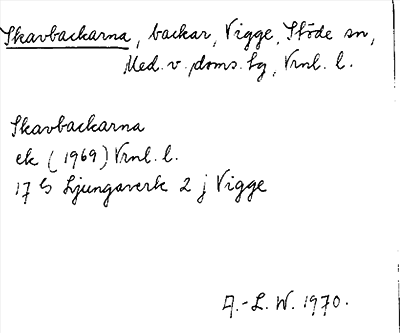 Skavbackarna, backar, Vigge, Stöde sn,
Med. v. doms. hg, Vrnl. l.
Skavbackarna
ek (1969) Vrnl. l.
17 G Ljungaverk 2 j Vigge
A.-L. W. 1970.